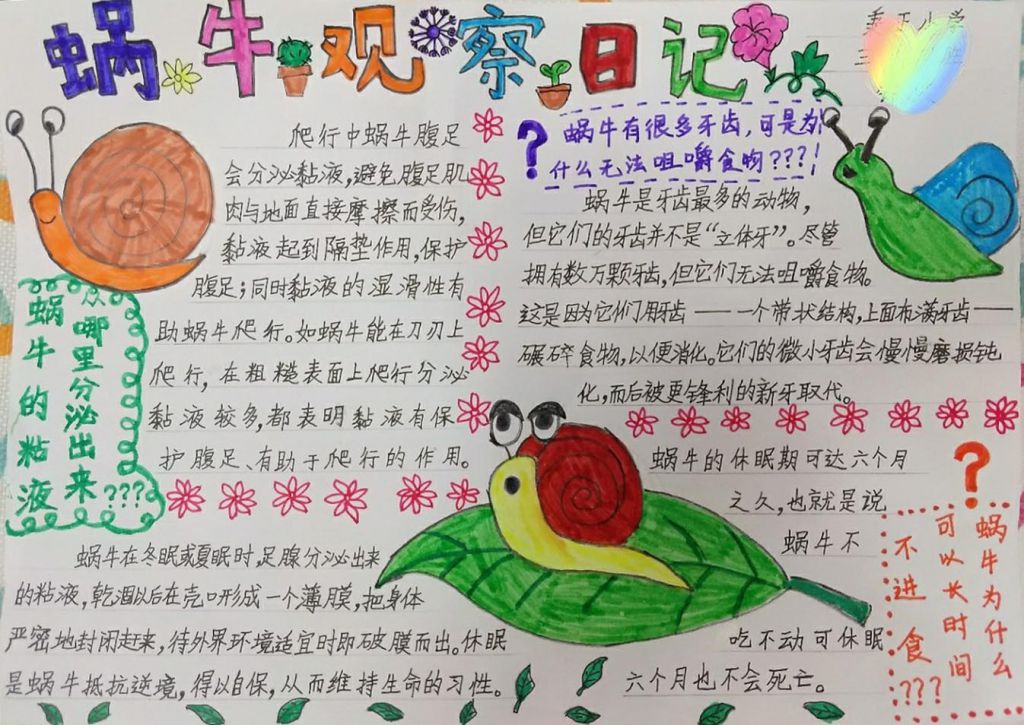 蜗牛观察日记
爬行中蜗牛腹足
会分泌黏液,避免腹足肌
肉与地面直接摩擦而受伤,
黏液起到隔垫作用,保护
腹足;同时黏液的湿滑性有
助蜗牛爬行。如蜗牛能在刀刃上
爬行,在粗糙表面上爬行分泌
黏液较多,都表明黏液有保
护腹足、有助于爬行的作用。
蜗牛的粘液
从哪里分泌出来
???
蜗牛在冬眠或夏眠时,足腺分泌出来
的粘液,乾涸以后在壳口形成一个薄膜,把身体
严密地封闭起来,待外界环境适宜时即破膜而出。休眠
是蜗牛抵抗逆境,得以自保,从而维持生命的习性。
?
蜗牛有很多牙齿,可是为
什么无法咀嚼食物???!
蜗牛是牙齿最多的动物,
但它们的牙齿并不是“立体牙”。尽管
拥有数万颗牙齿,但它们无法咀嚼食物。
这是因为它们用牙齿——一个带状结构,上面布满牙齿——
碾碎食物,以便消化。它们的微小牙齿会慢慢磨损钝
化,而后被更锋利的新牙取代。
蜗牛的休眠期可达六个月
之久,也就是说
蜗牛不
吃不动可休眠
六个月也不会死亡。
?
蜗牛为什么
可以长时间
不进食???